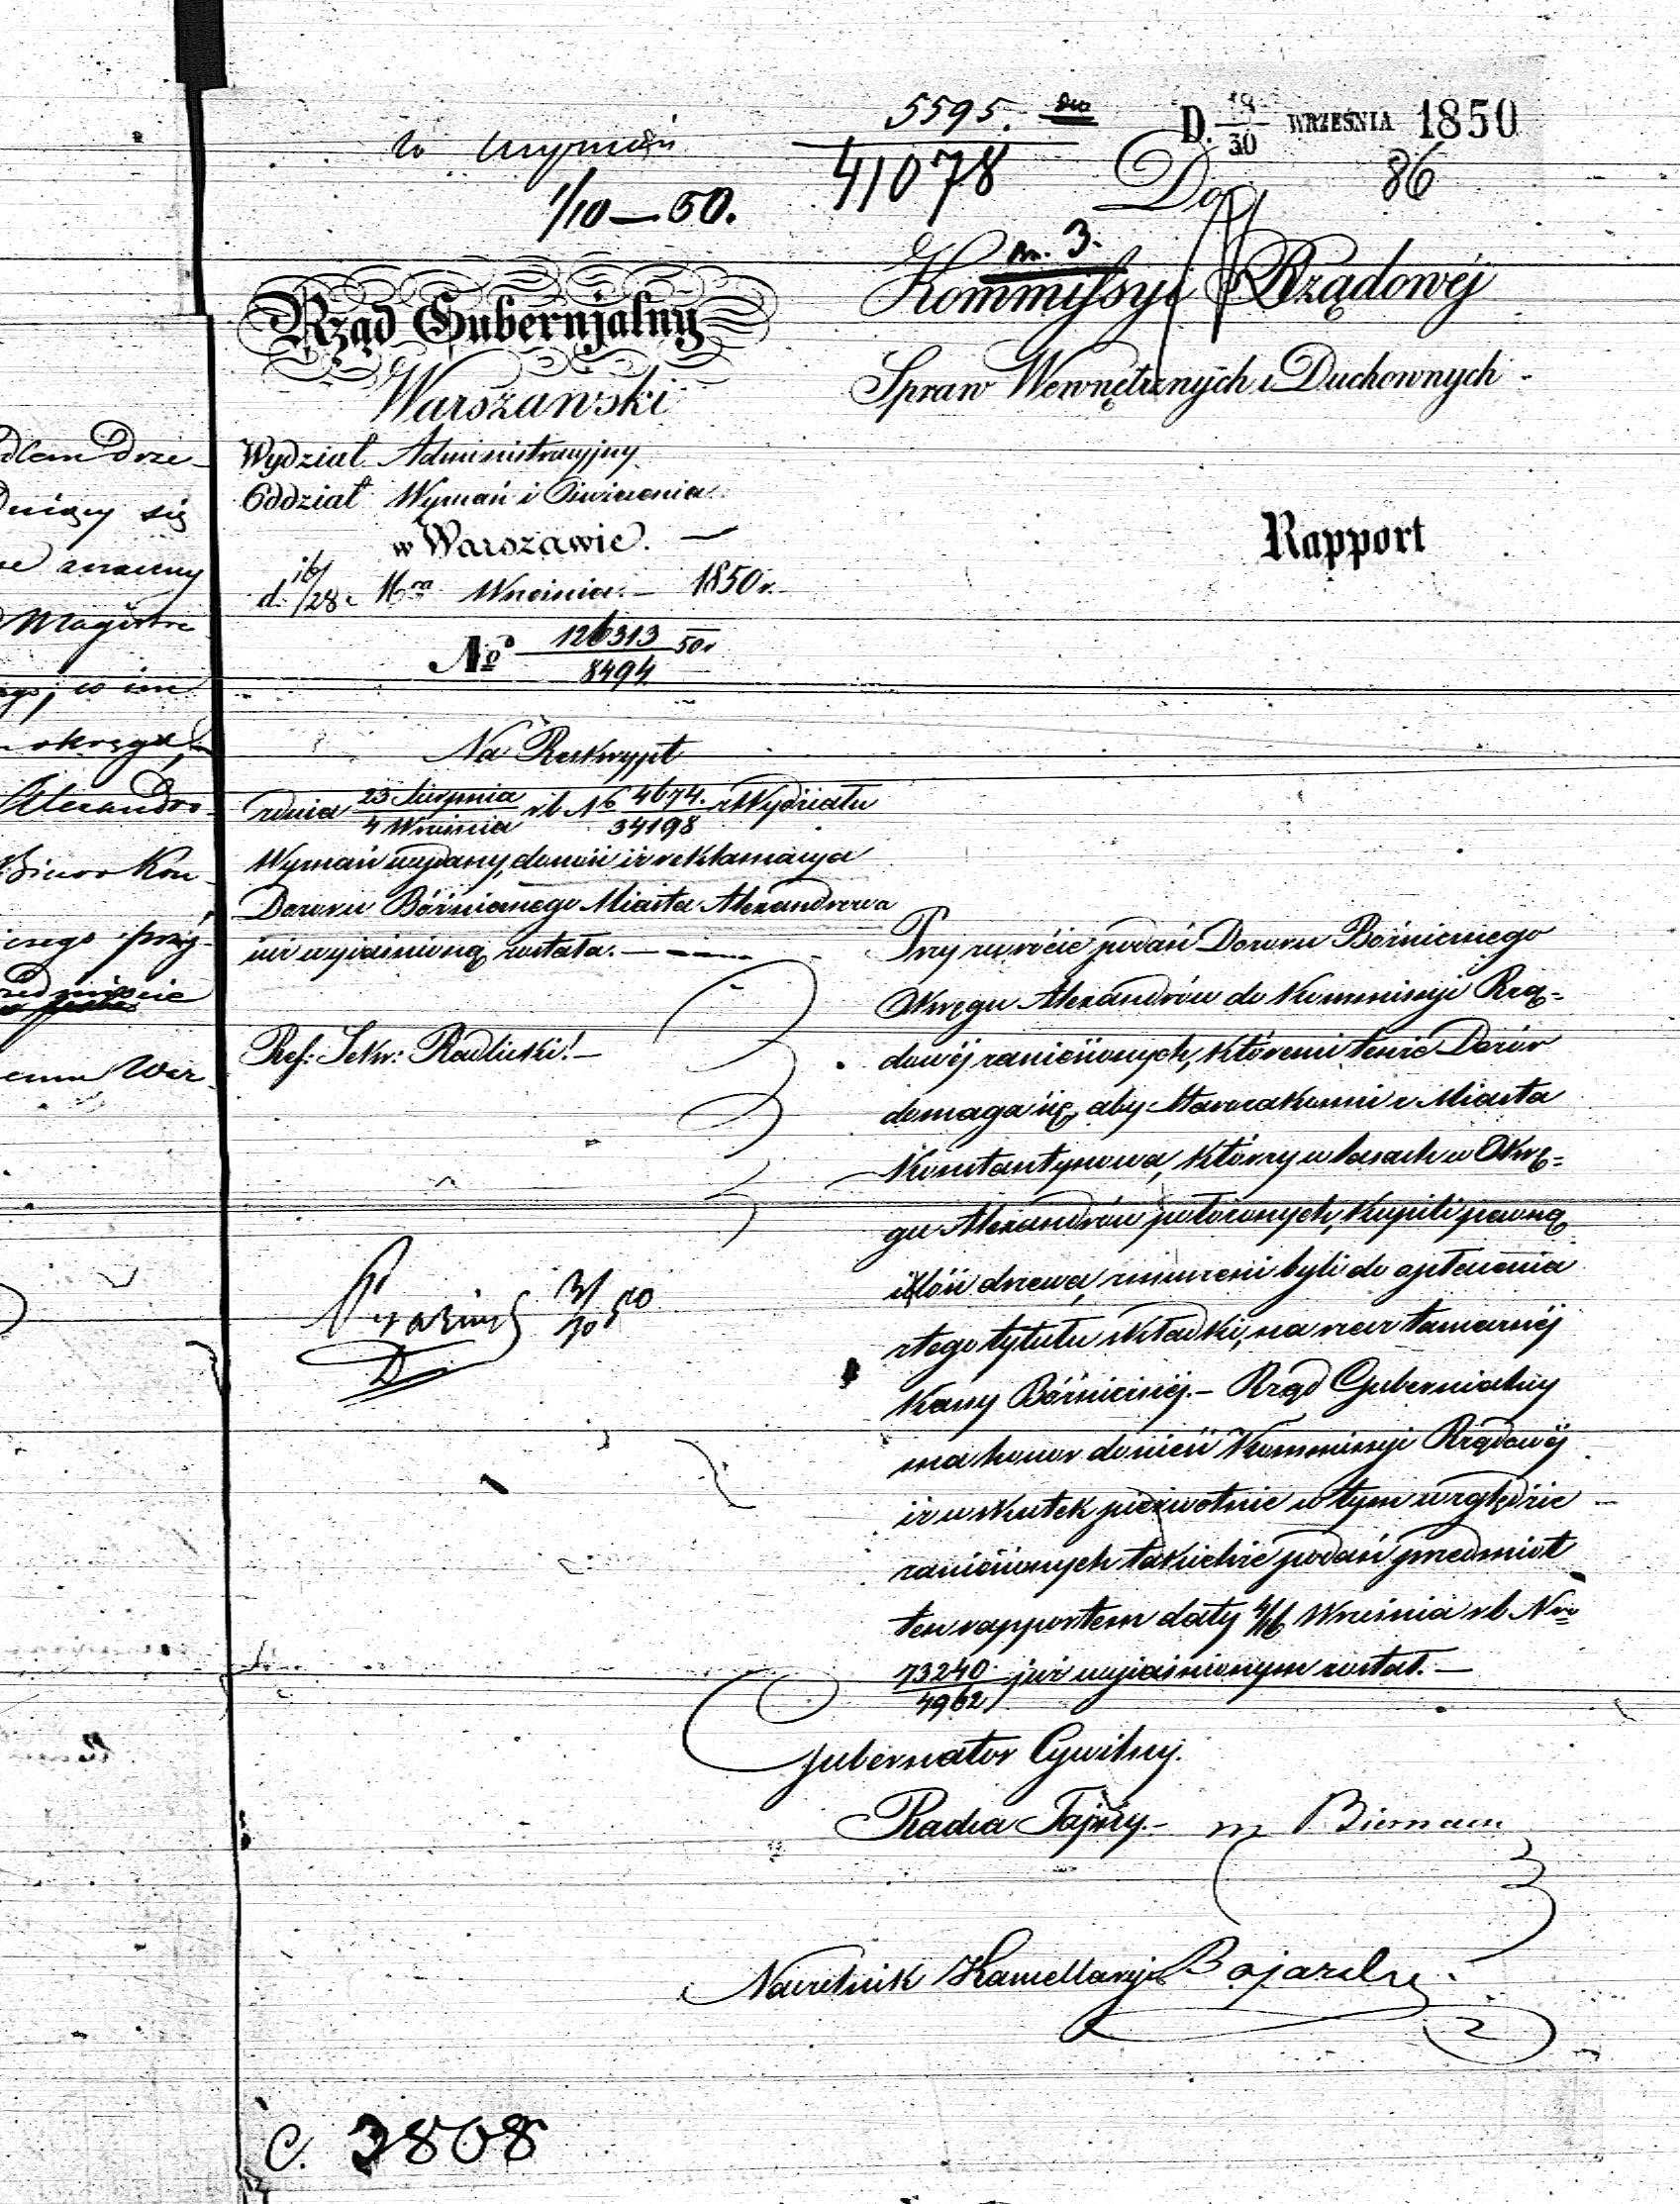 5595.
41078
D. 18/30 WRZEŚNIA 1850
86
w wyznań
1/10 — 50.
Do
m. 3.
Kommissyi Rządowéj
Spraw Wewnętrznych i Duchownych
Rząd Gubernjalny
Warszawski
Wydział Administracyjny
Oddział Wyznań i Oświecenia
w Warszawie.
d. 16/28 Września 1850 r.
Rapport
No 126313/8494 50r
Na Reskrypt
z dnia 23 Sierpnia/4 Września r b No 4674./34198 z Wydziału
Wyznań wydany, donosi iż reklamacya
Dozoru Bóżnicznego Miasta Alexandrowa
już wyjaśnioną została. —
Ref: Sekr: Radlicki! —
Przy zwrócie podań Dozoru Bóżnicznego
Okręgu Alexandrów do Kommissyi Rzą-
dowéj zaniesionych, któremi tenże Dozór
domaga się, aby Starozakonni z Miasta
Konstantynowa, którzy w lasach w Okrę-
gu Alexandrów położonych, kupili pewną
ilość drzewa, zmuszeni byli do opłacenia
z tego tytułu składki, na rzecz tamecznéj
Kassy Bóżnicznéj. — Rząd Gubernialny
ma honor donieść Kommissyi Rządowéj
iż w skutek pierwotnie w tym względzie
zaniesionych takichże podań przedmiot
ten rapportem daty 4/16 Września r b Nro
73240/4962 już wyjaśnionym został. —
Gubernator Cywilny.
Radca Tajny. —
Naczelnik Kancellaryi
C. 3808
dlem Drze-
dniący się
Magistra
w im
okręgu
Alexandro-
Biuro Kon-